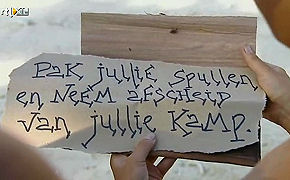 Pak jullie spullen
en neem afscheid
van jullie kamp.